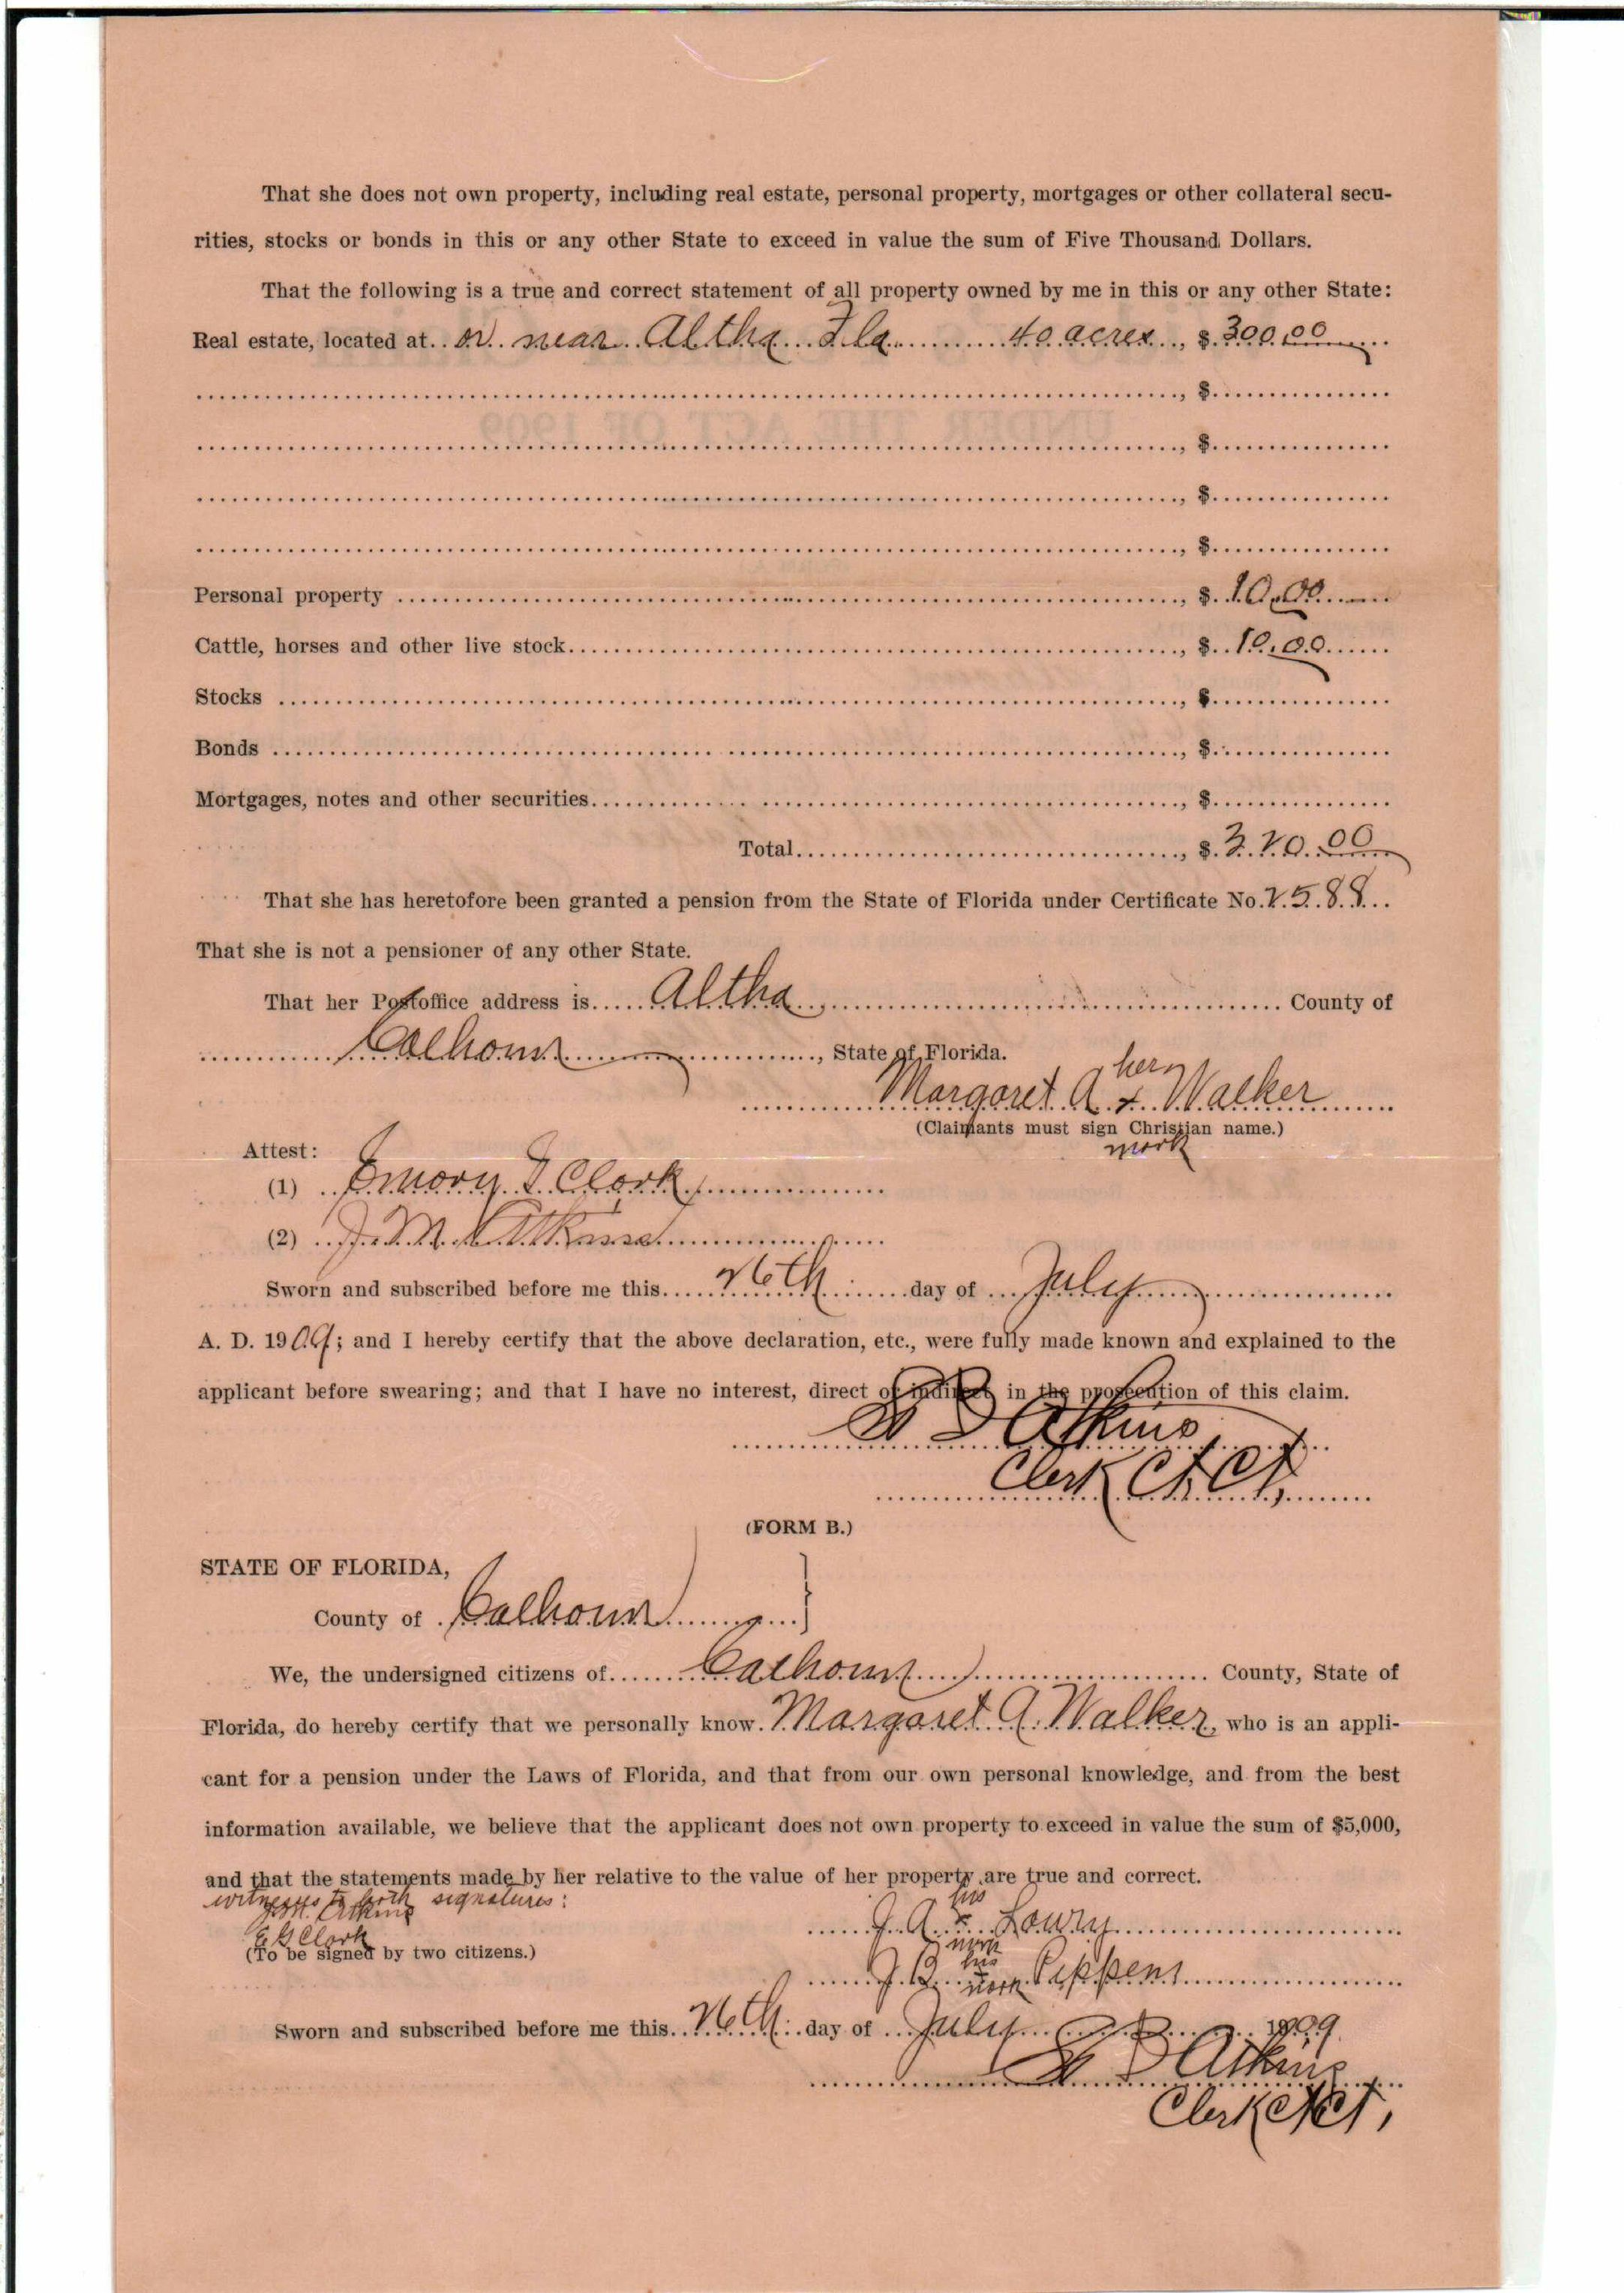 That she does not own property, including real estate, personal property, mortgages or other collateral secu-
rities, stocks or bonds in this or any other State to exceed in value the sum of Five Thousand Dollars.
That the following is a true and correct statement of all property owned by me in this or any other State:
Real estate, located at or near Altha Fla 40 acres, $ 300.00
UNDER THE ACT OF 1909
, $
, $
, $
, $
Personal property, $ 10.00
Cattle, horses and other live stock, $ 10.00
Stocks, $
Bonds, $
Mortgages, notes and other securities, $
Total, $ 320.00
That she has heretofore been granted a pension from the State of Florida under Certificate No. 2588
That she is not a pensioner of any other State.
That her Postoffice address is Altha County of
Calhoun, State of Florida.
her
Margaret A x Walker
(Claimants must sign Christian name.)
mark
Attest:
(1) Emory G Clark
(2) J. M. Atkins
Sworn and subscribed before me this 26th day of July
A. D. 1909; and I hereby certify that the above declaration, etc., were fully made known and explained to the
applicant before swearing; and that I have no interest, direct or indirect, in the prosecution of this claim.
Atkins
Clerk Ct. Ct.
(FORM B.)
STATE OF FLORIDA,
County of Calhoun
We, the undersigned citizens of Calhoun County, State of
Florida, do hereby certify that we personally know Margaret A. Walker, who is an appli-
cant for a pension under the Laws of Florida, and that from our own personal knowledge, and from the best
information available, we believe that the applicant does not own property to exceed in value the sum of $5,000,
and that the statements made by her relative to the value of her property are true and correct.
witnesses to both signatures:
J.M. Atkins
E G Clark
(To be signed by two citizens.)
his
J. A. x Lowry
mark
his
J. B. x Peppens
mark
Sworn and subscribed before me this 26th day of July 1909
Atkins
Clerk Ct Ct,